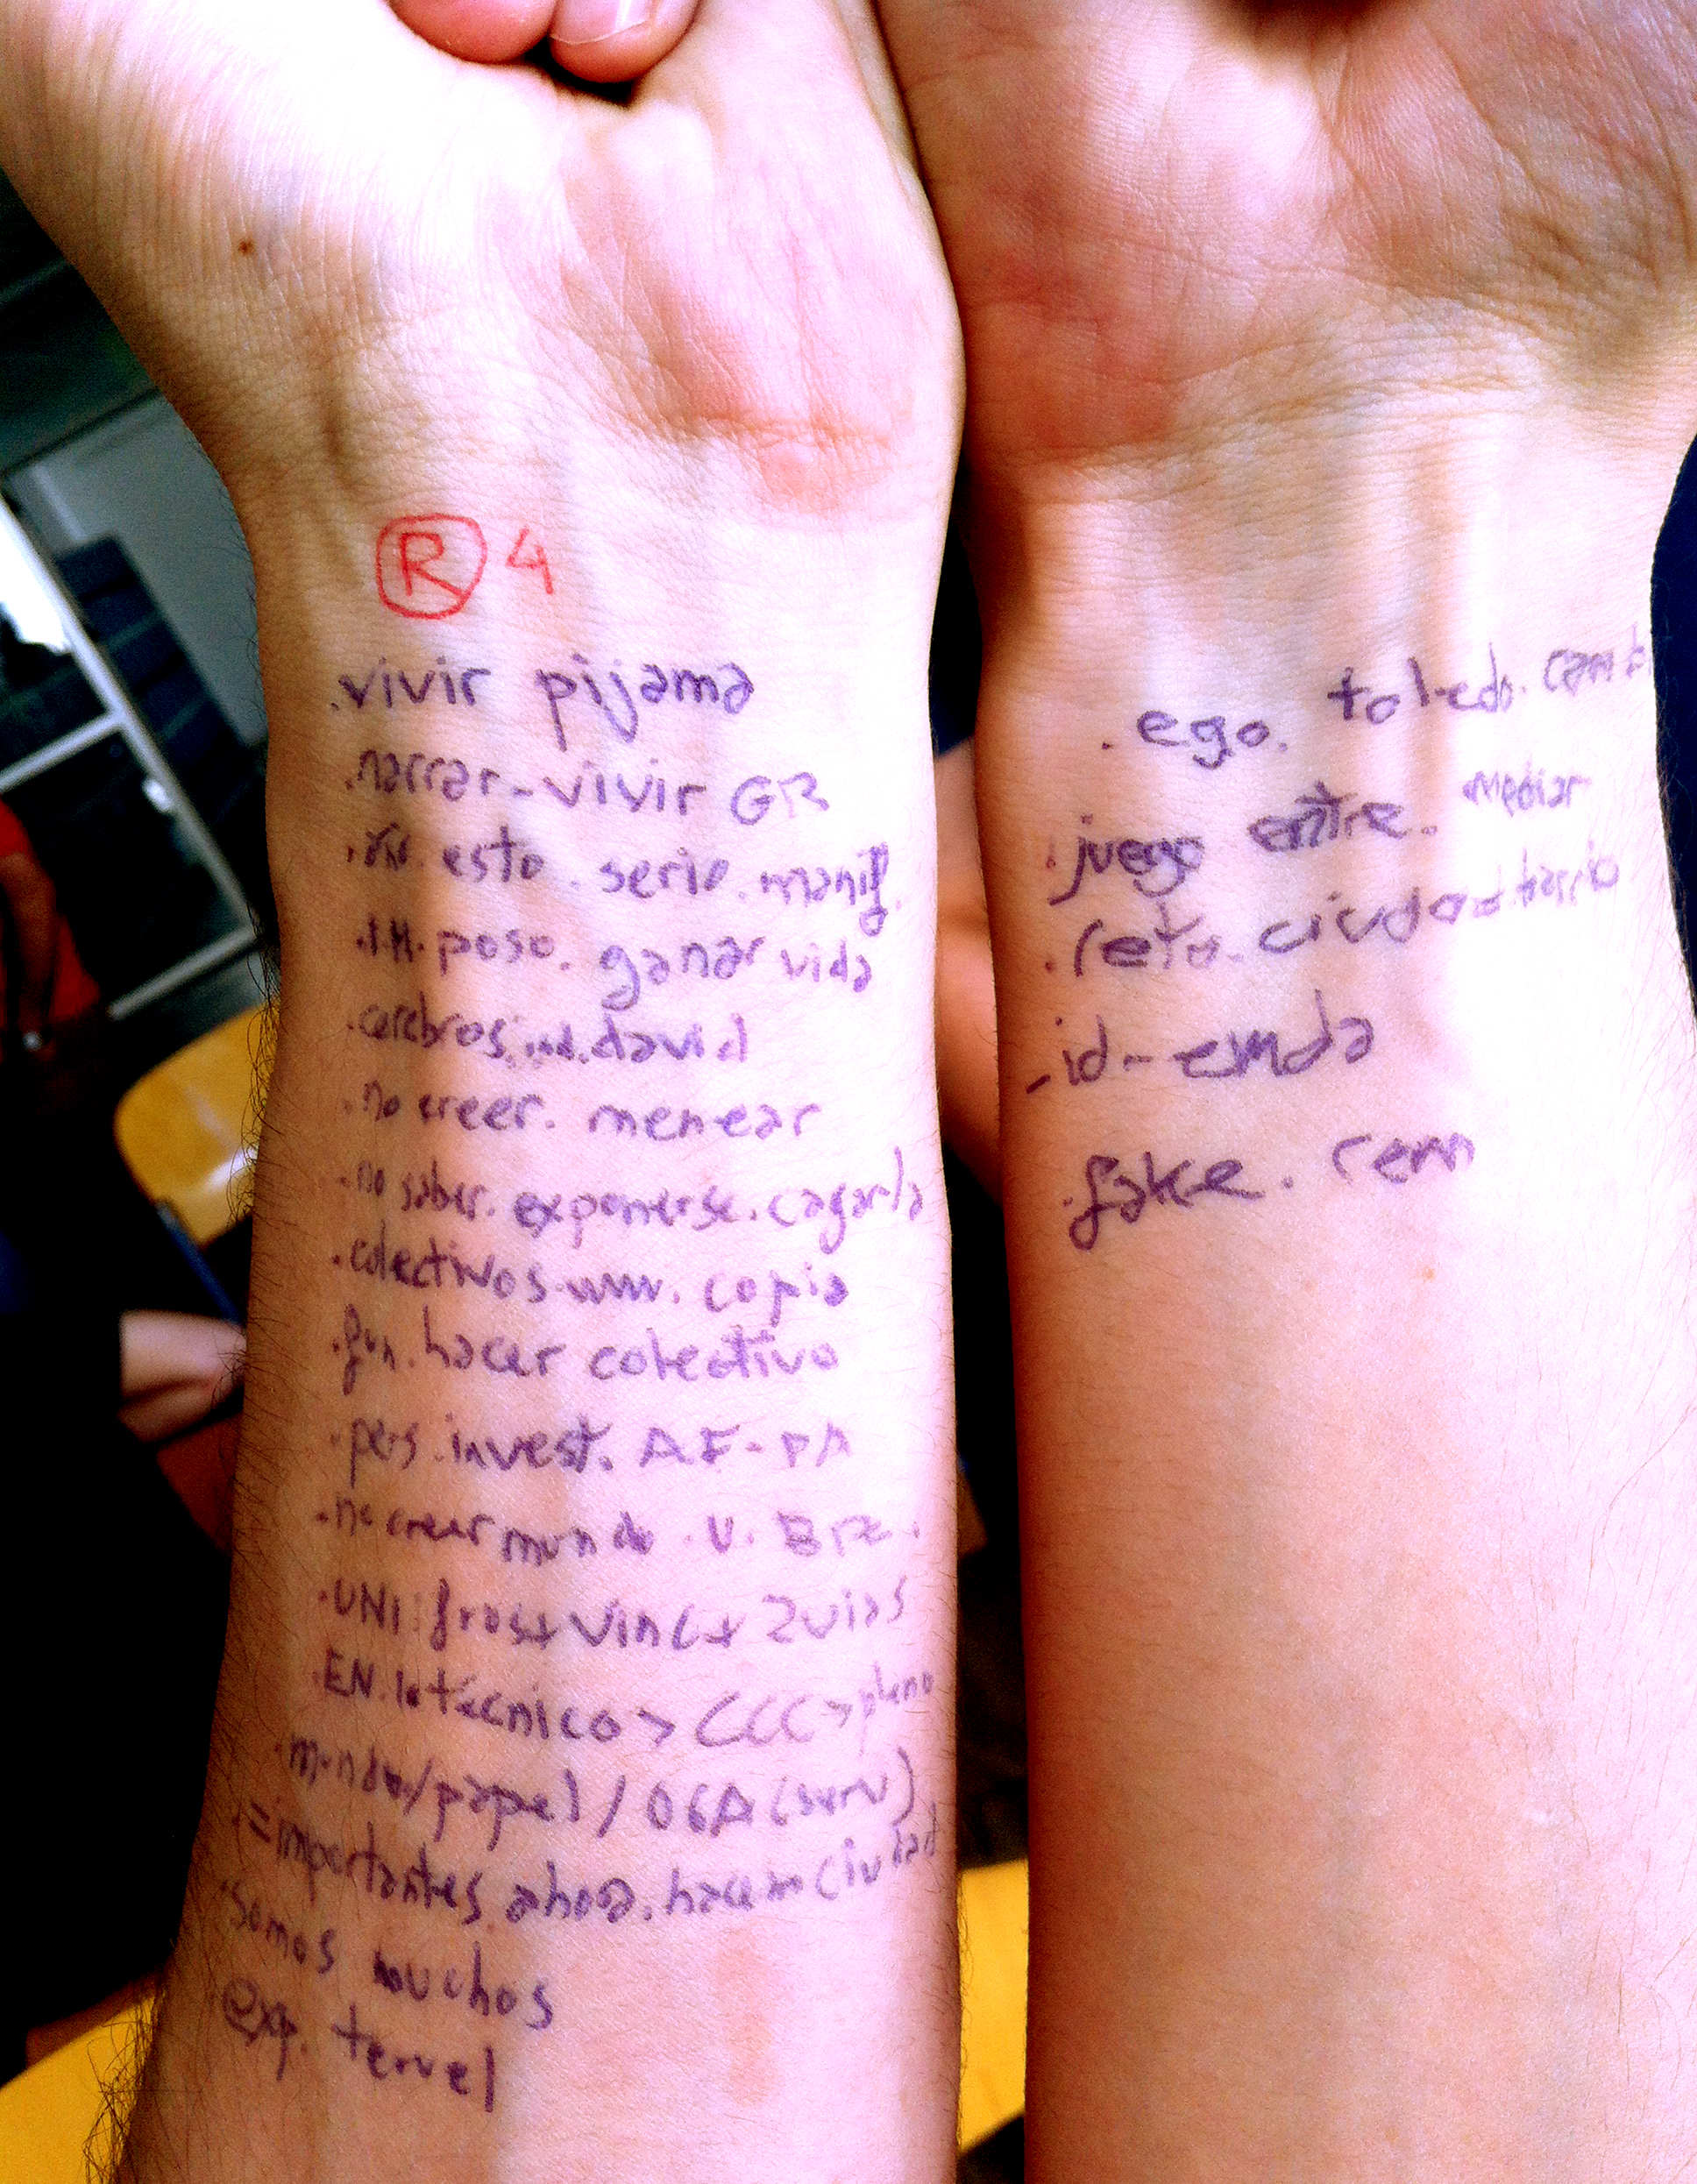 R 4
.vivir pijama
.narrar-vivir GR
esto.serio.manif.
poso. ganar vida
.cerebros.ind.david
.no creer. menear
.no saber. exponerse. cagarla
.colectivos www. copia
.fun.hacer colectivo
.pers.invest. A.F-PA
.no creer mundo.U.
.UNI: Vinc+ 2vias
.EN.lo técnico > CCC > pleno
.mundo/papel/06A(serv)
.=importantes.ahora.hacem ciudad
.somos muchos
exp. teruel
.ego. toledo.camb
.juego entre. mediar
.reto.ciudad barrio
-id-emoda
.fake. rem